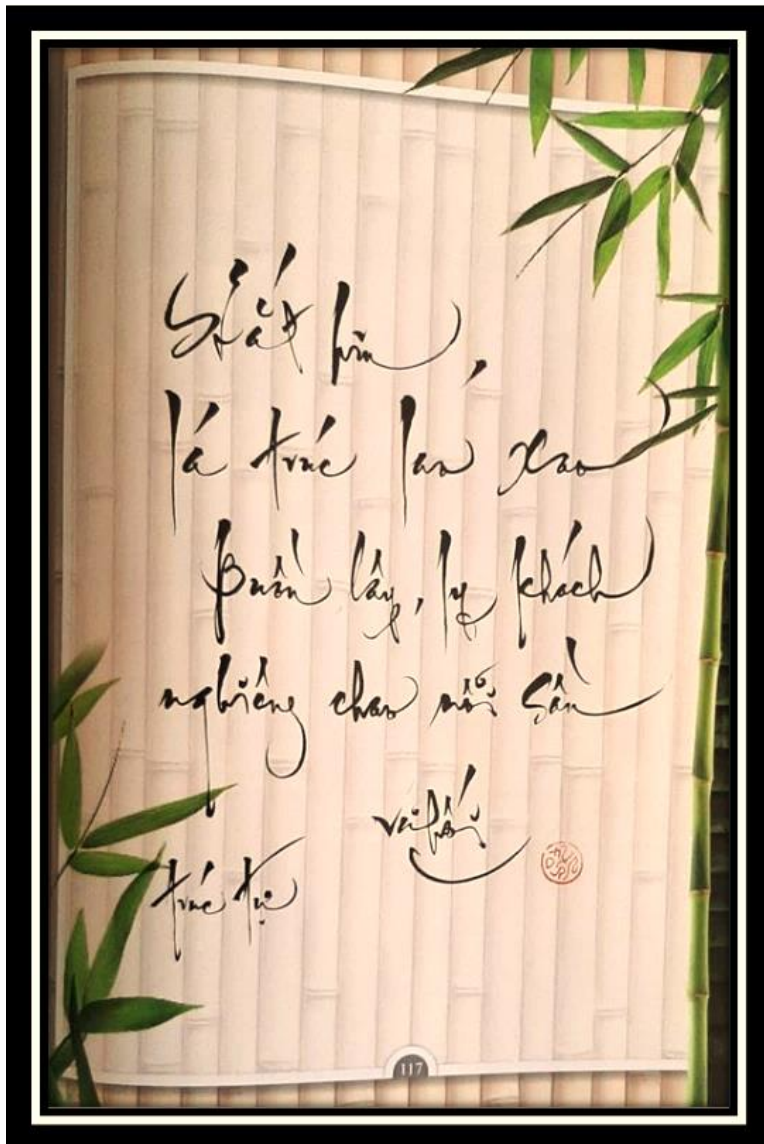 Hắt hiu,
lá trúc lao xao
Buồn lây, ly khách
nghiêng chao nỗi sầu
vũ hối
trúc tự
117